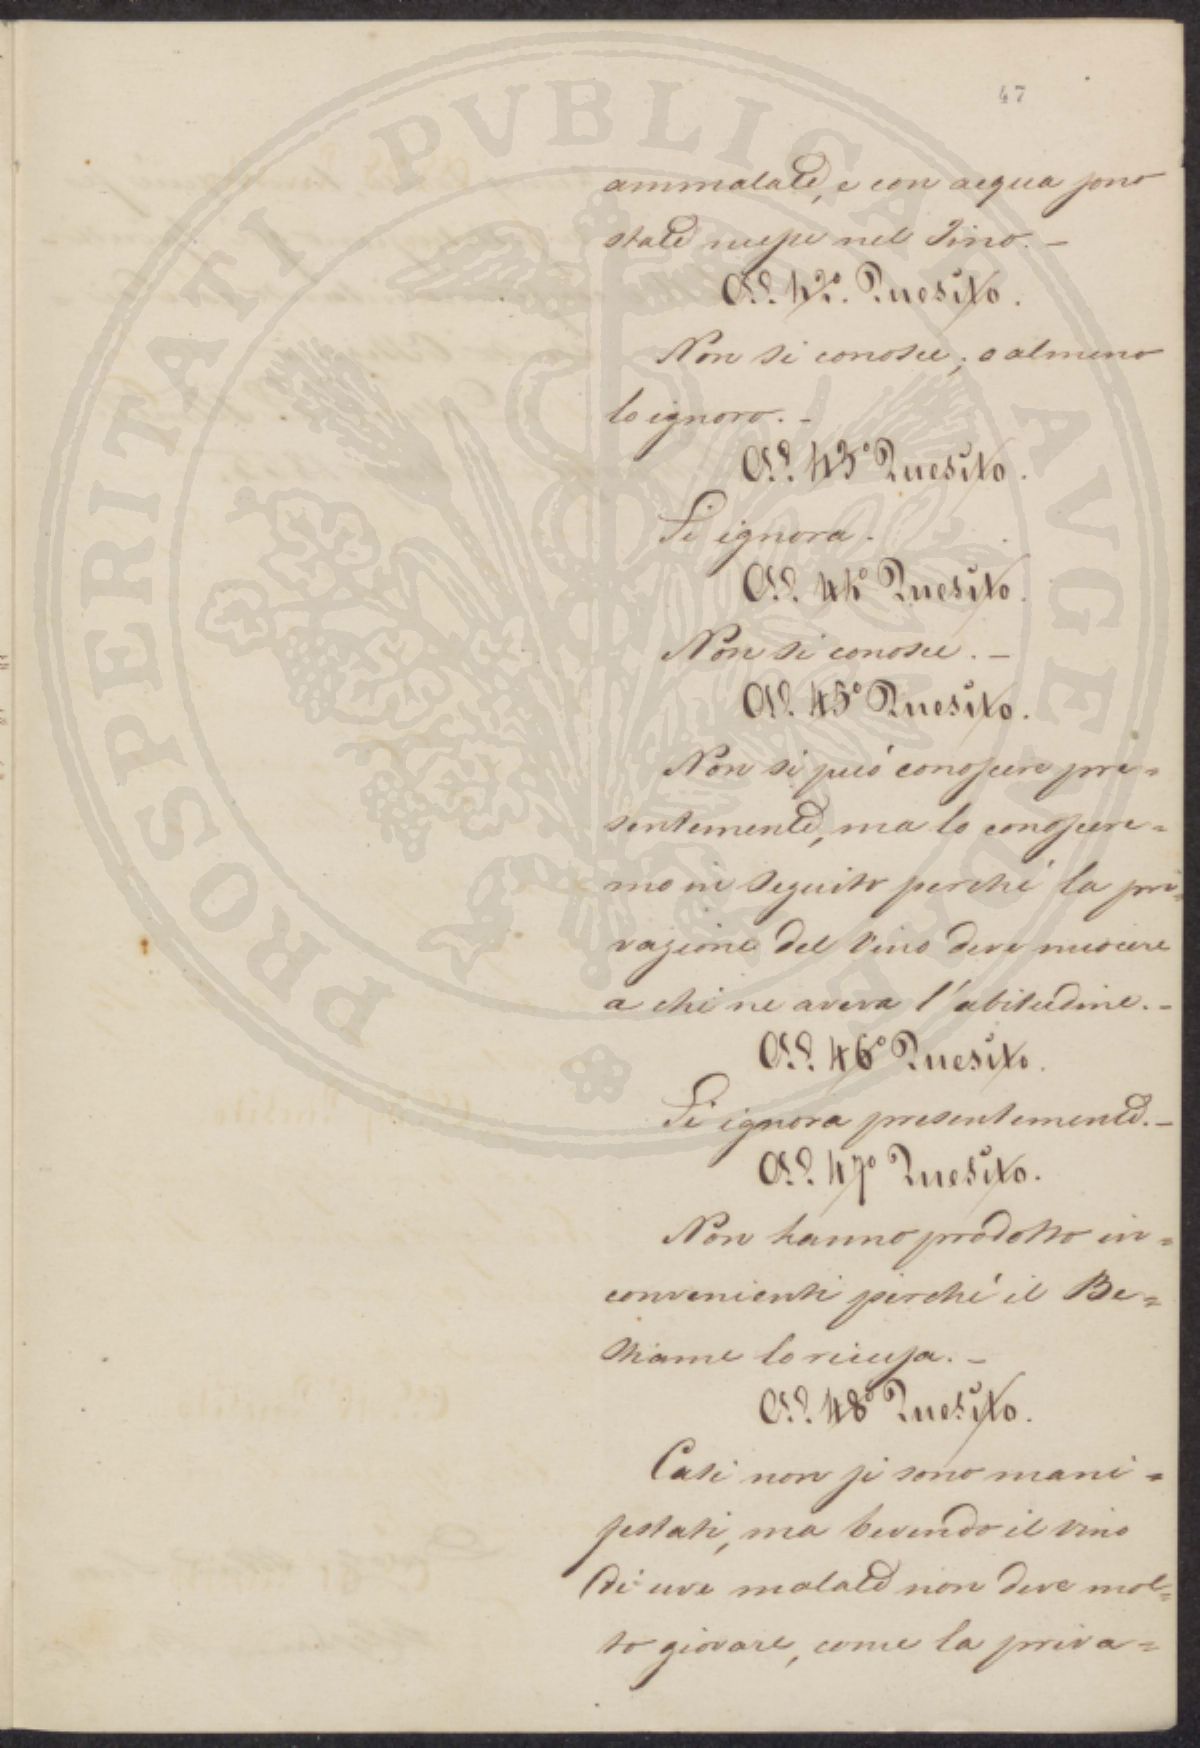 47
ammalate, e con acqua sono
state messe nel Tino. -
Ad. 42°. Quesito.
Non si conosce, o almeno
lo ignoro. -
Ad. 43° Quesito.
Si ignora.
Ad. 44° Quesito.
Non si conosce. -
Ad. 45° Quesito.
Non si può conoscere pre=
sentemente, ma lo conoscere=
mo in seguito perché la pri=
vazione del vino deve nuocere
a chi ne aveva l'abitudine. -
Ad. 46° Quesito.
Si ignora presentemente. -
Ad. 47° Quesito.
Non hanno prodotto in=
convenienti perché il Be=
stiame lo ricusa. -
Ad. 48° Quesito.
Casi non si sono mani=
festati, ma bevendo il vino
di uve malate non deve mol=
to giovare, come la priva=
PROSPERITATI PVBLICAE AVGENDAE